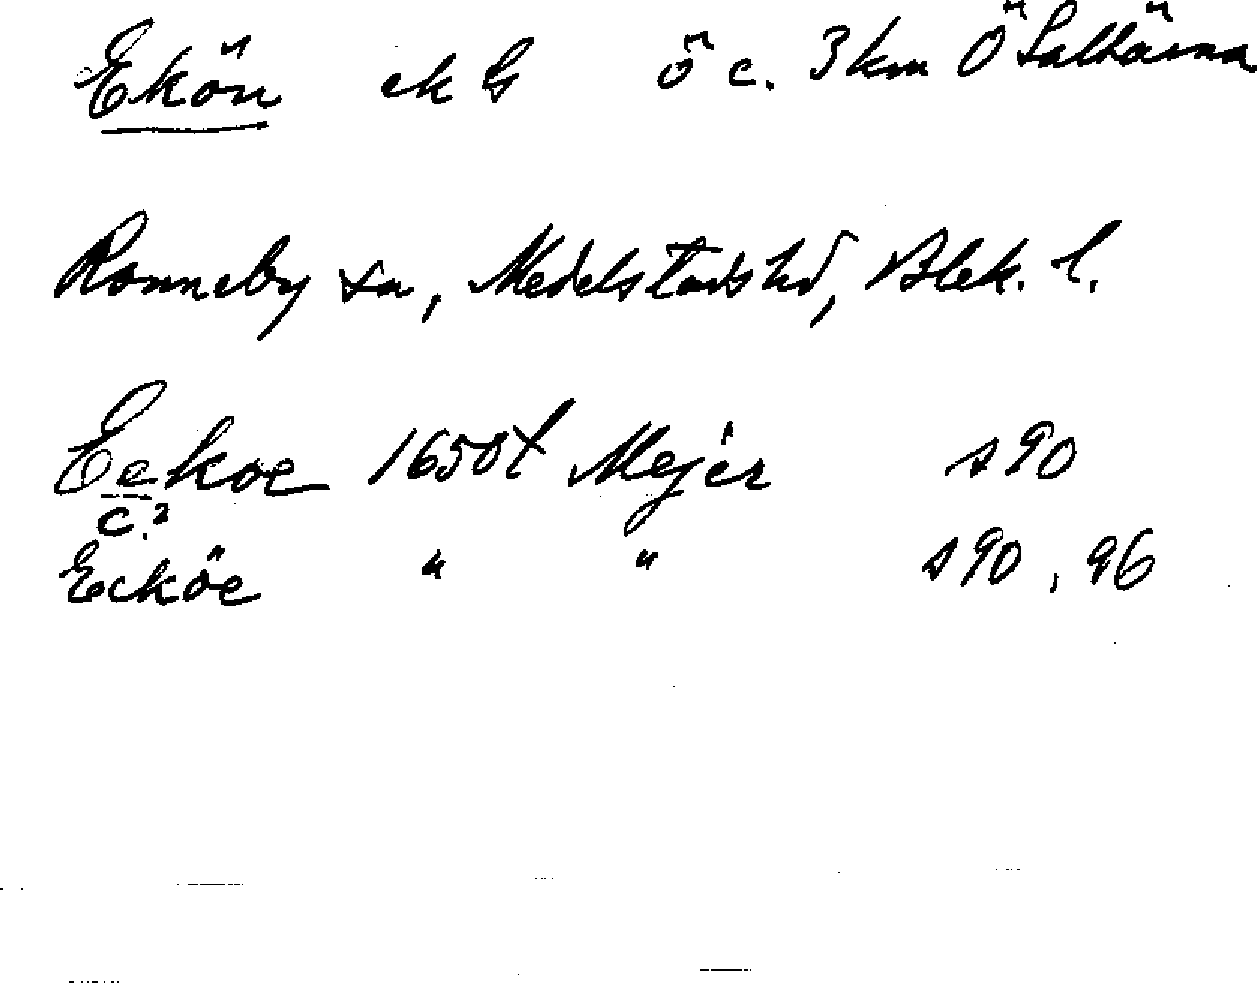 Ekön ek G ö c. 3 km Ö Saltärna
Ronneby sn, Medelstads hd, Blek. l.
Eekoe 1650t Mejer s 90
c?
Ecköe " " s 90, 96